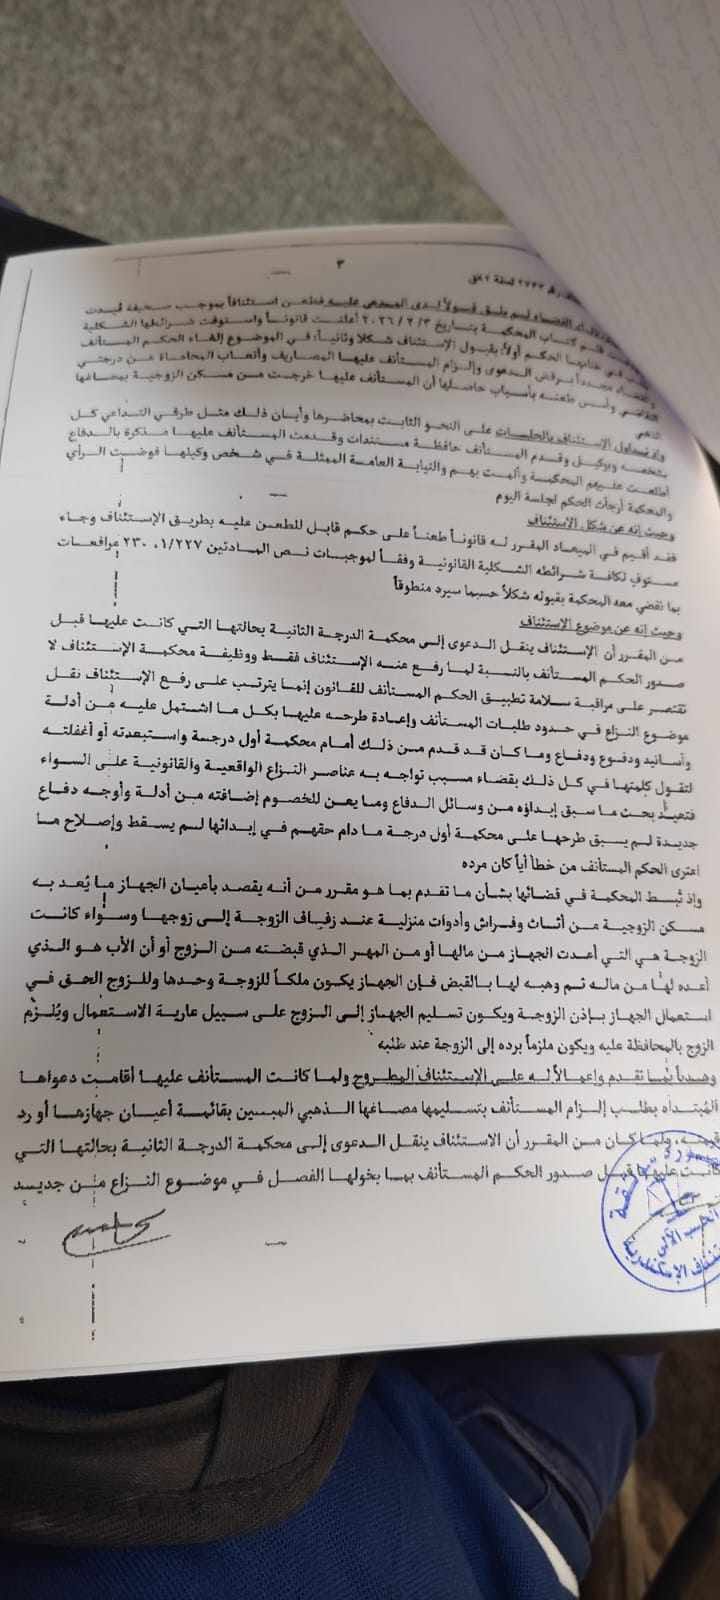 ٣
رقم ٢٧٢٣ لسنة ٨٢ق
القضاء لم يلق قبولاً لدى المدعى عليه فطعن استئنافاً بموجب صحيفة قيدت
قلم كتاب المحكمة بتاريخ ٣ / ٢ / ٢٠٢٦ أعلنت قانوناً واستوفت شرائطها الشكلية
في ختامها الحكم أولاً: بقبول الاستئناف شكلا وثانياً: في الموضوع إلغاء الحكم المستأنف
مجدداً برفض الدعوى وإلزام المستأنف عليها المصاريف وأتعاب المحاماة عن درجتي
التقاضي وأسس طعنه بأسباب حاصلها أن المستأنف عليها خرجت من مسكن الزوجية بمصاغها
الذهبي
وإذ تداول الاستئناف بالجلسات على النحو الثابت بمحاضرها وأبان ذلك مثل طرفي التداعي كل
بشخصه وبوكيل وقدم المستأنف حافظة مستندات وقدمت المستأنف عليها مذكرة بالدفاع
اطلعت عليهم المحكمة وألمت بهم والنيابة العامة الممثلة في شخص وكيلها فوضت الرأي
والمحكمة أرجأت الحكم لجلسة اليوم
وحيث إنه عن شكل الاستئناف
فقد أقيم في الميعاد المقرر له قانوناً طعناً على حكم قابل للطعن عليه بطريق الإستئناف وجاء
مستوف لكافة شرائطه الشكلية القانونية وفقاً لموجبات نص المادتين ١/٢٢٧، ٢٣٠ مرافعات
بما تقضي معه المحكمة بقبوله شكلاً حسبما سيرد منطوقاً
وحيث إنه عن موضوع الاستئناف
من المقرر أن الإستئناف ينقل الدعوى إلى محكمة الدرجة الثانية بحالتها التي كانت عليها قبل
صدور الحكم المستأنف بالنسبة لما رفع عنه الإستئناف فقط ووظيفة محكمة الإستئناف لا
تقتصر على مراقبة سلامة تطبيق الحكم المستأنف للقانون إنما يترتب على رفع الإستئناف نقل
موضوع النزاع في حدود طلبات المستأنف وإعادة طرحه عليها بكل ما اشتمل عليه من أدلة
وأسانيد ودفوع ودفاع وما كان قد قدم من ذلك أمام محكمة أول درجة واستبعدته أو أغفلته
لتقول كلمتها في كل ذلك بقضاء مسبب تواجه به عناصر النزاع الواقعية والقانونية على السواء
فتعيد بحث ما سبق إبداؤه من وسائل الدفاع وما يعن للخصوم إضافته من أدلة وأوجه دفاع
جديدة لم يسبق طرحها على محكمة أول درجة ما دام حقهم في إبدائها لم يسقط وإصلاح ما
اعترى الحكم المستأنف من خطأ أياً كان مرده
وإذ تبسط المحكمة في قضائها بشأن ما تقدم بما هو مقرر من أنه يقصد بأعيان الجهاز ما يُعد به
مسكن الزوجية من أثاث وفراش وأدوات منزلية عند زفاف الزوجة إلى زوجها وسواء كانت
الزوجة هي التي أعدت الجهاز من مالها أو من المهر الذي قبضته من الزوج أو أن الأب هو الذي
أعده لها من ماله ثم وهبه لها بالقبض فإن الجهاز يكون ملكاً للزوجة وحدها وللزوج الحق في
استعمال الجهاز بإذن الزوجة ويكون تسليم الجهاز إلى الزوج على سبيل عارية الاستعمال ويُلزم
الزوج بالمحافظة عليه ويكون ملزماً برده إلى الزوجة عند طلبه
وهدياً بما تقدم وإعمالاً له على الإستئناف المطروح ولما كانت المستأنف عليها أقامت دعواها
المُبتدأه بطلب إلزام المستأنف بتسليمها مصاغها الذهبي المبين بقائمة أعيان جهازها أو رد
قيمته، ولما كان من المقرر أن الاستئناف ينقل الدعوى إلى محكمة الدرجة الثانية بحالتها التي
كانت عليها قبل صدور الحكم المستأنف بما يخولها الفصل في موضوع النزاع من جديد
الحاسب الآلي
استئناف الإسكندرية